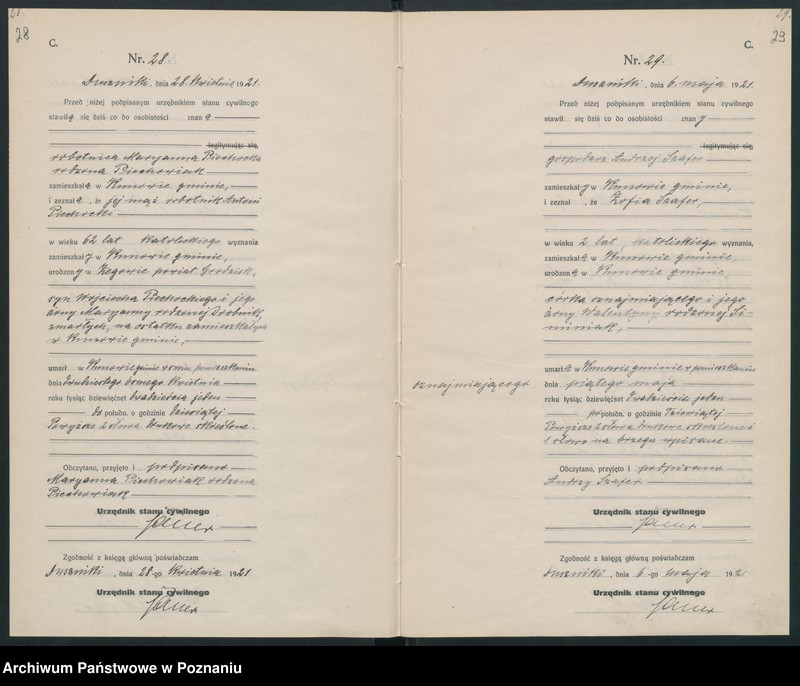 28
C.
Nr. 28.
Duszniki, dnia 28. Kwietnia 1921.
Przed niżej podpisanym urzędnikiem stanu cywilnego
stawiła się dziś co do osobistości znana
legitymując się,
robotnica Maryanna Piechocka
rodzona Piechowiak
zamieszkała w Kunowie gminie,
i zeznała, że jej mąż robotnik Antoni
Piechocki
w wieku 62 lat katolickiego wyznania
zamieszkały w Kunowie gminie,
urodzony w Zegowie powiat Grodzisk,
syn Wojciecha Piechockiego i jego
żony Maryanny rodzonej Drobnik,
zmarłych, na ostatku zamieszkałych
w Kunowie gminie,
umarł w Kunowie gminie w swém pomieszkaniu
dnia dwudziestego ósmego Kwietnia
roku tysiąc dziewięćset dwadzieścia jeden
do połudn. o godzinie dziewiątej
Powyższe 2 słowa drukowe skreślone.
Odczytano, przyjęto i podpisano
Maryanna Piechowiak rodzona
Piechowiak
Urzędnik stanu cywilnego
Zgodność z księgą główną poświadczam
Duszniki, dnia 28-go Kwietnia 1921
Urzędnik stanu cywilnego
29.
29
C.
Nr. 29.
Duszniki, dnia 6. maja 1921.
Przed niżej podpisanym urzędnikiem stanu cywilnego
stawił się dziś co do osobistości znany
legitymując się,
gospodarz Andrzej Szafer
zamieszkały w Kunowie gminie,
i zeznał, że Zofia Szafer,
w wieku 2 lat, katolickiego wyznania,
zamieszkała w Kunowie gminie
urodzona w Kunowie gminie
córka oznajmiającego i jego
żony Walentyny rodzonej Si-
miniak,
umarła w Kunowie gminie w pomieszkaniu
oznajmiającego
dnia piątego maja
roku tysiąc dziewięćset dwadzieścia jeden
po połudn. o godzinie dziewiątej
Powyższe 2 słowa drukowe skreślone i
1 słowo na brzegu wpisane.
Odczytano, przyjęto i podpisano
Andrzej Szafer
Urzędnik stanu cywilnego
Zgodność z księgą główną poświadczam
Duszniki, dnia 6-go maja 1921
Urzędnik stanu cywilnego
Archiwum Państwowe w Poznaniu